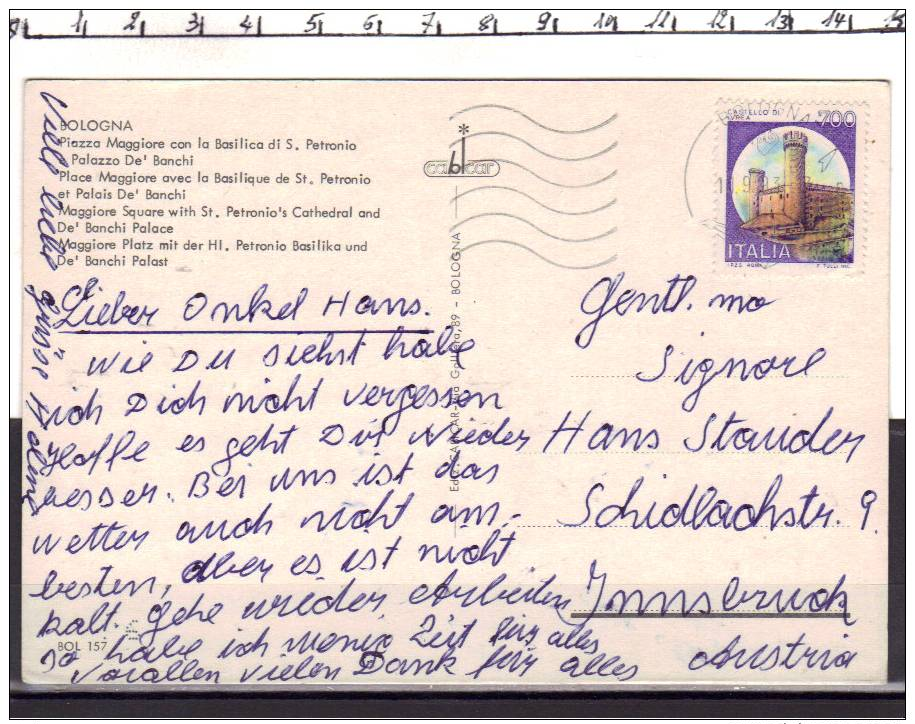 1 2 3 4 5 6 7 8 9 10 11 12 13 14 15
BOLOGNA
Piazza Maggiore con la Basilica di S. Petronio
Palazzo De' Banchi
Place Maggiore avec la Basilique de St. Petronio
et Palais De' Banchi
Maggiore Square with St. Petronio's Cathedral and
De' Banchi Palace
Maggiore Platz mit der Hl. Petronio Basilika und
De' Banchi Palast
Lieber Onkel Hans.
Wie Du siehst habe
ich Dich nicht vergessen
Hoffe es geht Dir wieder
besser. Bei uns ist das
Wetter auch nicht am
besten, aber es ist nicht
kalt. Gehe wieder Arbeiten
so habe ich wenig Zeit für alles
Vorallen vielen Dank für alles
Viele liebe Grüße
BOL 157
* 
bl
cabicar
BOLOGNA
CASTELLO DI
IVREA
700
ITALIA
I.P.Z.S. ROMA
F. TULLI INC.
Gentl. mo
Signore
Hans Stauder
Schidlachstr. 9.
Innsbruck
Austria